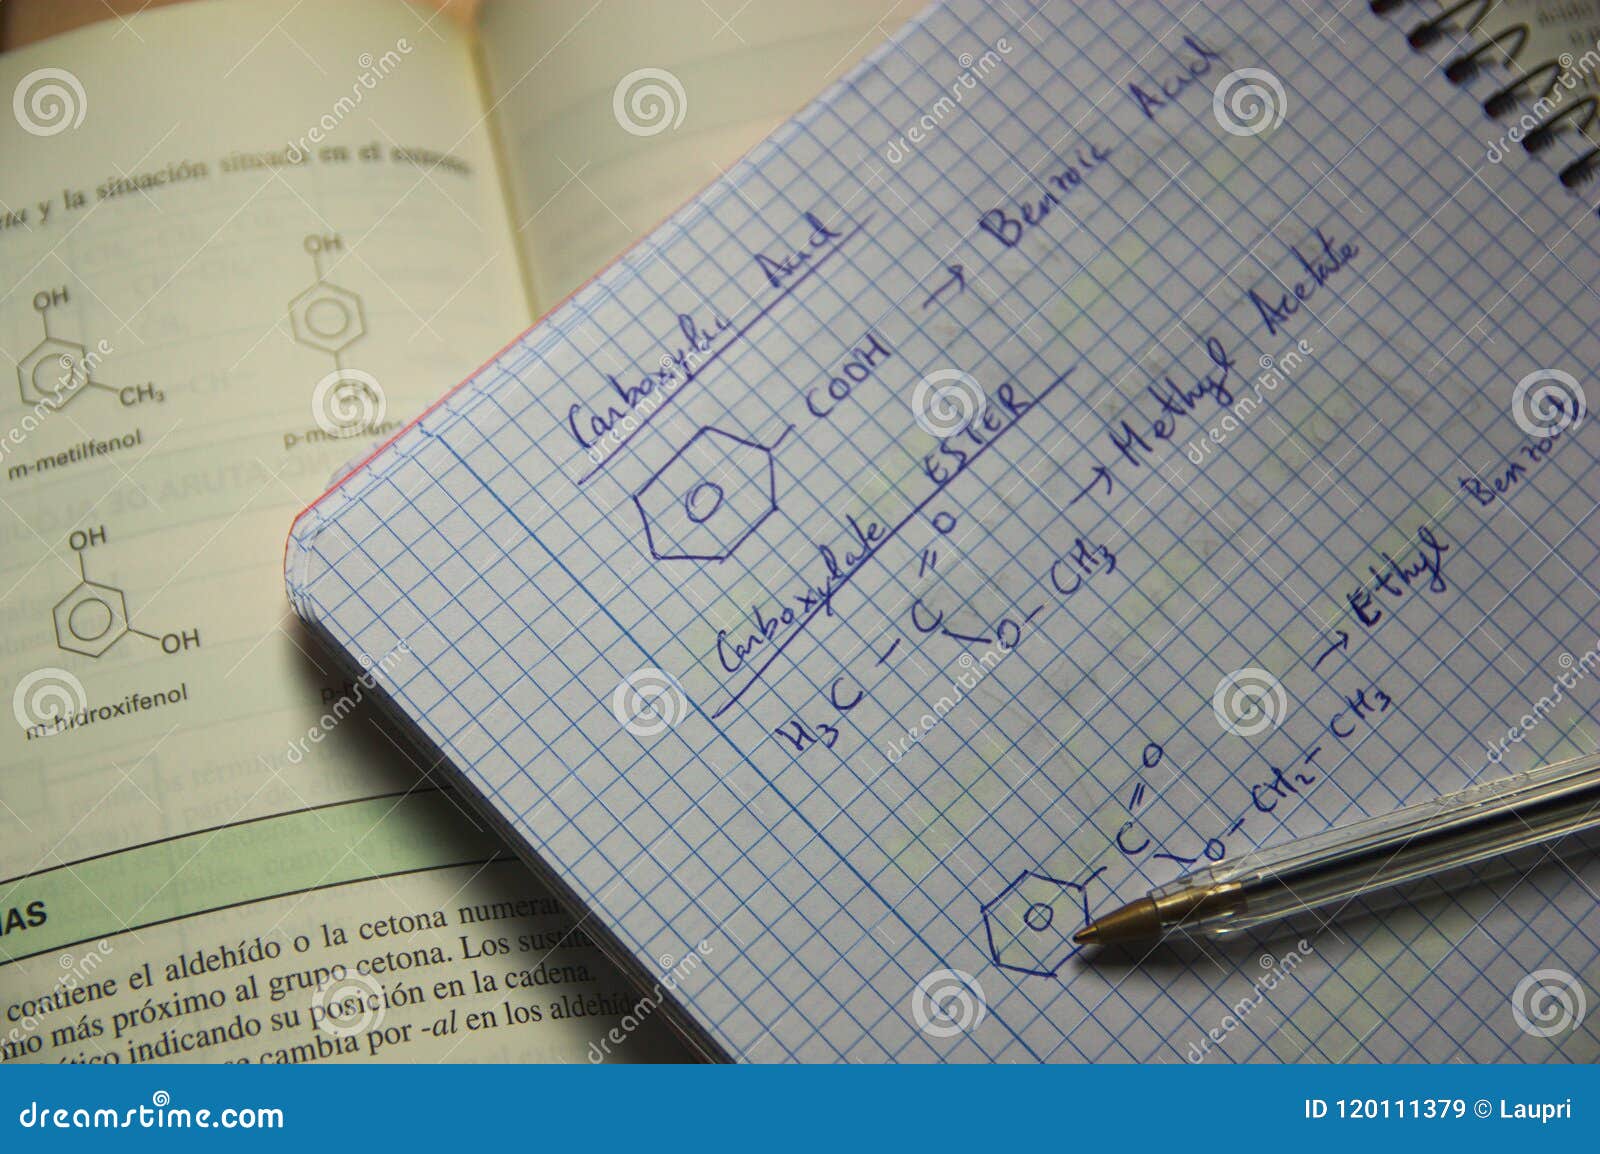 y la situación situada en el extremo
OH
CH₃
m-metilfenol
OH
OH
OH
m-hidroxifenol
contiene el aldehído o la cetona
más próximo al grupo cetona. Los
indicando su posición en la cadena.
cambia por -al en los
Carboxylic Acid
COOH → Benzoic Acid
Carboxylate ESTER
O
H3C - C
O - CH3 → Methyl Acetate
O
C
O - CH2 - CH3 → Ethyl
dreamstime.com
ID 120111379 © Laupri